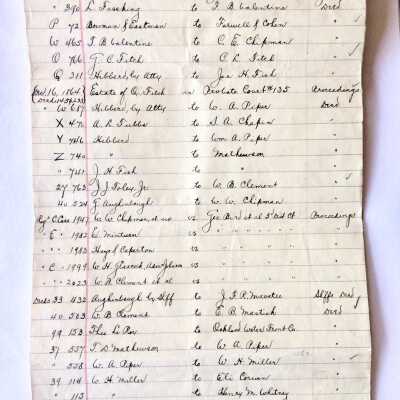 " 390 L. to F. B. Valentine Deed
P 72 Bowman & Eastman to Farwell & Cohen "
W 465 T. B. Valentine to C. E. Chipman "
O 766 G. C. Fitch to C. L. Fitch "
Q 311 Hibberd, by Atty to Jos H. Fish "
Dec. 16, 1864 Estate of Q. Fitch in Probate Court #135 Proceedings
W 657 Hibberd, by Atty to W. A. Piper Deed
X 470 A. L. Tubbs to S. A. Chapin "
Y 786 Hibberd to Wm A. Piper "
Z 740 " to Mathewson "
" 741 J. H. Fish to " "
27 763 J. J. Foley, Jr. to W. B. Clement "
40 504 G. Aughinbaugh to W. W. Chipman "
1947 W. W. Chipman, et ux vs Geo. Bird et al 3d Dist Ct Proceedings
" E " 1982 E. Minturn vs " " " " "
" " " 1983 Hays & Caperton vs " " " " "
" C " 1999 W. H. Glascock, vs " " " " "
" " " 2023 W. B. Clement et al vs " " " " "
Deeds 33 432 Aughinbaugh by Shff to J. F. R. Shffs Deed
40 503 W. B. Clement to E. B. Mastick Deed
99 153 Theo. Le Roy to Oakland Water Front Co. "
37 557 T. D. Mathewson to W. A. Piper "
" 558 W. A. Piper to W. H. Miller "
39 114 W. H. Miller to Eli "
" 115 " to Henry M. Whitney "